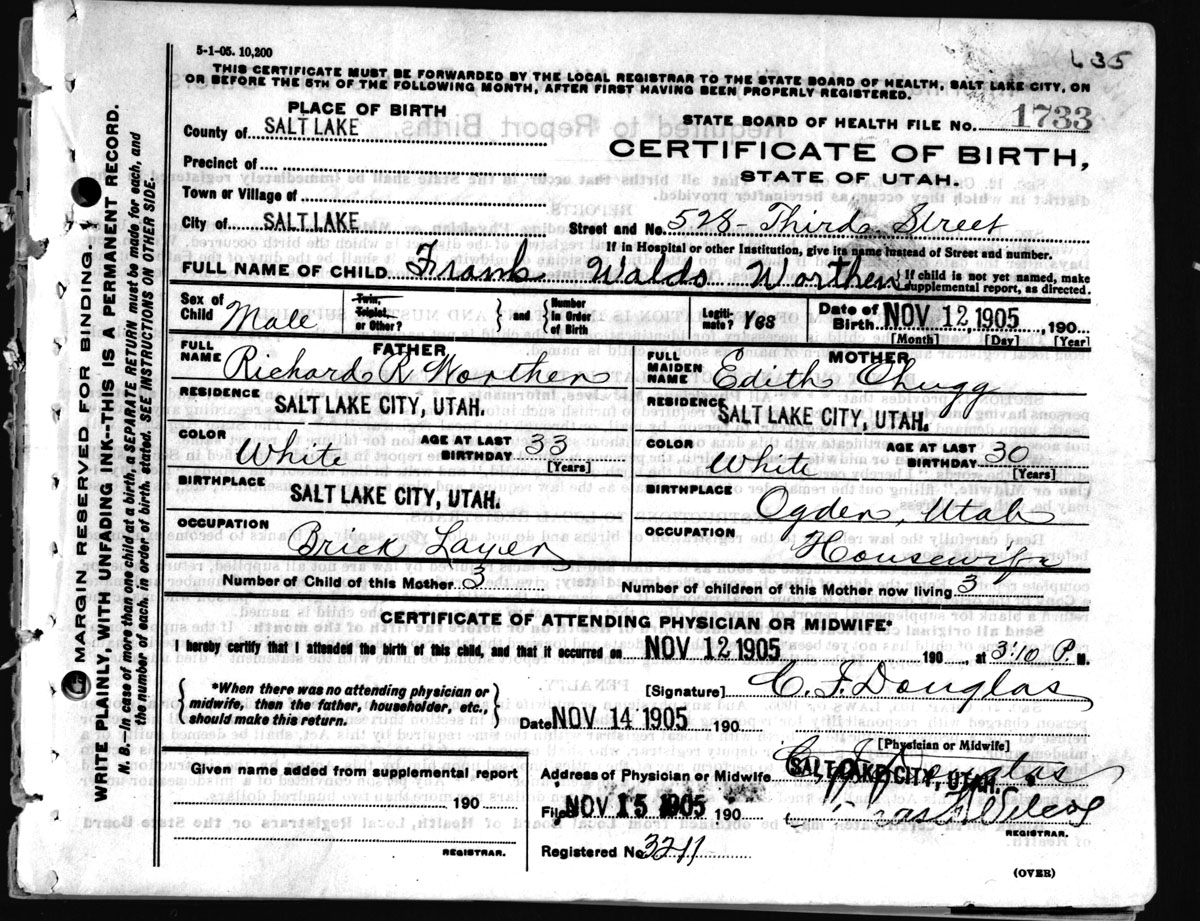 5-1-05. 10,200
L35
THIS CERTIFICATE MUST BE FORWARDED BY THE LOCAL REGISTRAR TO THE STATE BOARD OF HEALTH, SALT LAKE CITY, ON
OR BEFORE THE 5TH OF THE FOLLOWING MONTH, AFTER FIRST HAVING BEEN PROPERLY REGISTERED.
PLACE OF BIRTH
STATE BOARD OF HEALTH FILE NO. 1733
County of SALT LAKE
CERTIFICATE OF BIRTH,
Precinct of
STATE OF UTAH.
Town or Village of
City of SALT LAKE
Street and No. 528- Third Street
If in Hospital or other Institution, give its name instead of Street and number.
FULL NAME OF CHILD Frank Waldo Worthen { If child is not yet named, make supplemental report, as directed.
Sex of Child Male
Twin, Triplet, or Other? } and { Number in Order of Birth
Legiti- mate? Yes
Date of Birth NOV 12 1905, 190
[Month] [Day] [Year]
FATHER
FULL NAME Richard R Worthen
MOTHER
FULL MAIDEN NAME Edith Chugg
RESIDENCE SALT LAKE CITY, UTAH.
RESIDENCE SALT LAKE CITY, UTAH.
COLOR White AGE AT LAST BIRTHDAY 33 [Years]
COLOR White AGE AT LAST BIRTHDAY 30 [Years]
BIRTHPLACE SALT LAKE CITY, UTAH.
BIRTHPLACE Ogden, Utah
OCCUPATION Brick Layer
OCCUPATION Housewife
Number of Child of this Mother 3
Number of children of this Mother now living 3
CERTIFICATE OF ATTENDING PHYSICIAN OR MIDWIFE*
I hereby certify that I attended the birth of this child, and that it occurred on NOV 12 1905 190, at 3:10 P. M.
{ *When there was no attending physician or midwife, then the father, householder, etc., should make this return. }
[Signature] C. F. Douglas
Date NOV 14 1905 190
[Physician or Midwife]
Given name added from supplemental report
190
REGISTRAR.
Address of Physician or Midwife SALT LAKE CITY, UTAH.
C F Douglas
Filed NOV 15 1905 190
REGISTRAR.
Registered No. 3211
(OVER)
MARGIN RESERVED FOR BINDING.
WRITE PLAINLY, WITH UNFADING INK--THIS IS A PERMANENT RECORD.
N. B.--In case of more than one child at a birth, a SEPARATE RETURN must be made for each, and
the number of each, in order of birth, stated. SEE INSTRUCTIONS ON OTHER SIDE.